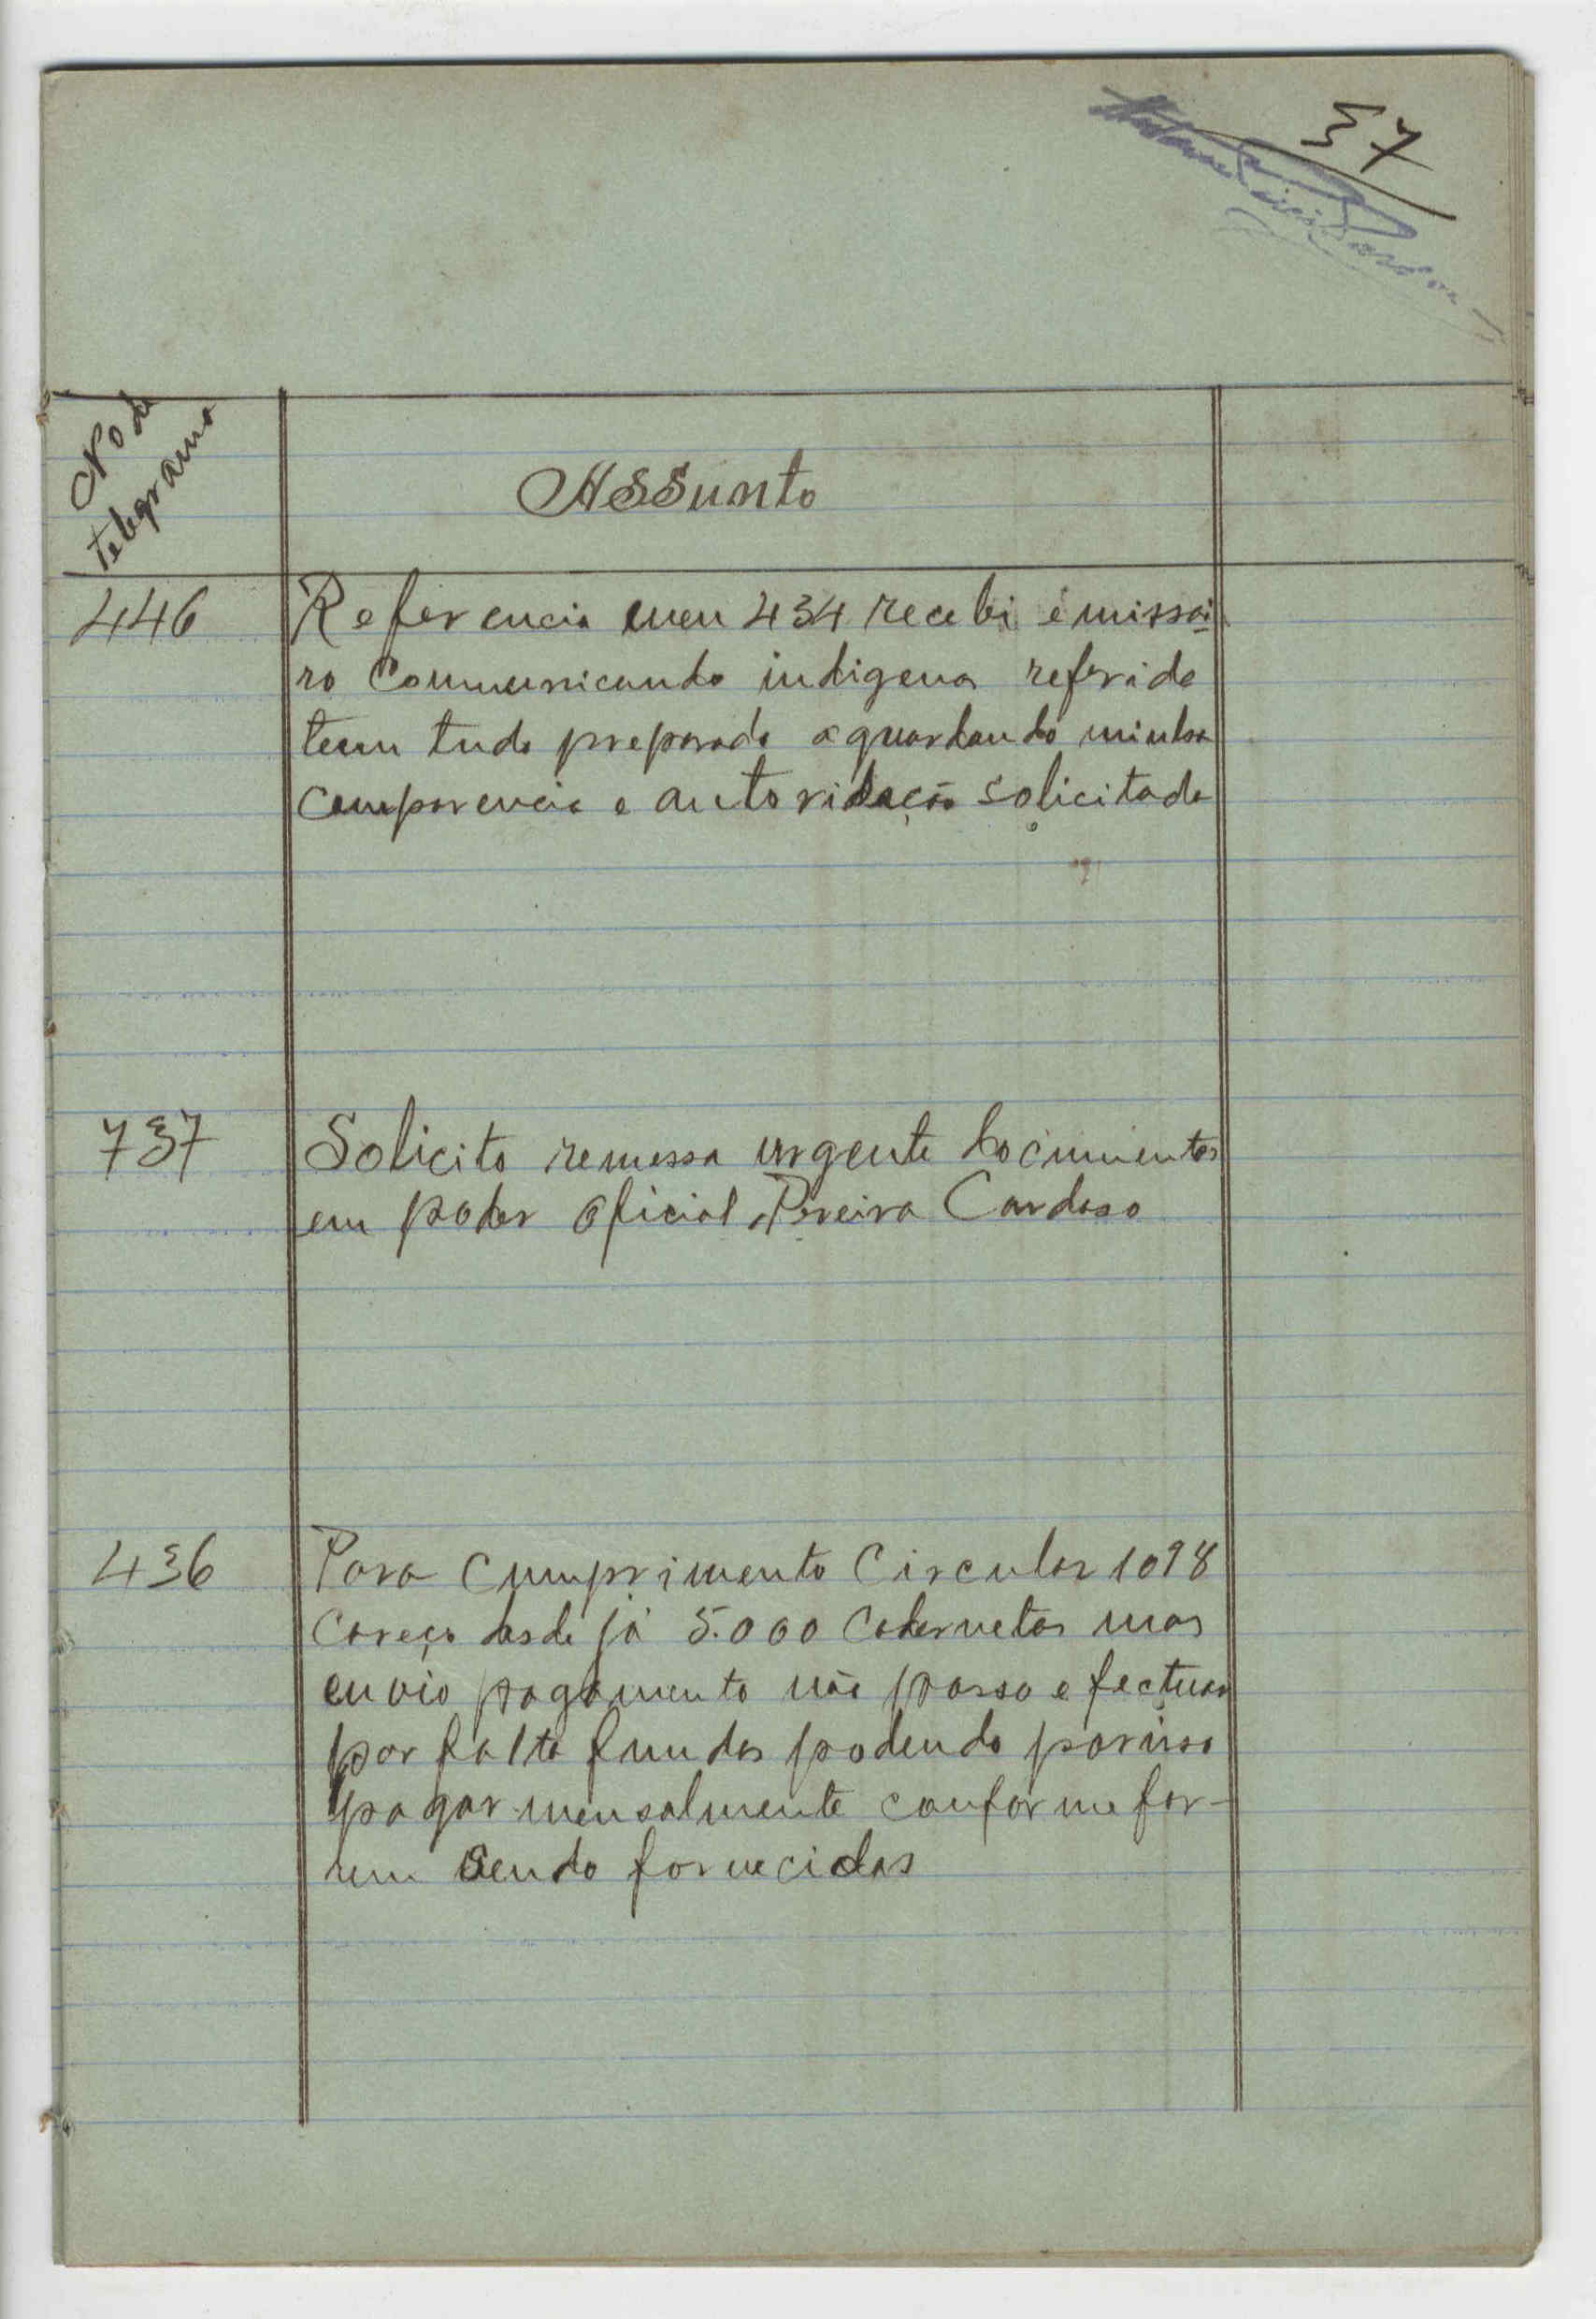 37
No de
telegrama
Assunto
446
Referencia meu 434 recebi emissai
ro Communicando indigena referido
tem tudo preparado aguardando minha
comparencia e autorisação solicitada
737
Solicito remessa urgente documentos
em poder oficial Pereira Cardoso
436
Para cumprimento Circular 1098
Careço desde já 5.000 Cadernetas mas
envio pagamento não posso efectuar
por falta fundos podendo porisso
pagar mensalmente conforme for-
em sendo fornecidas